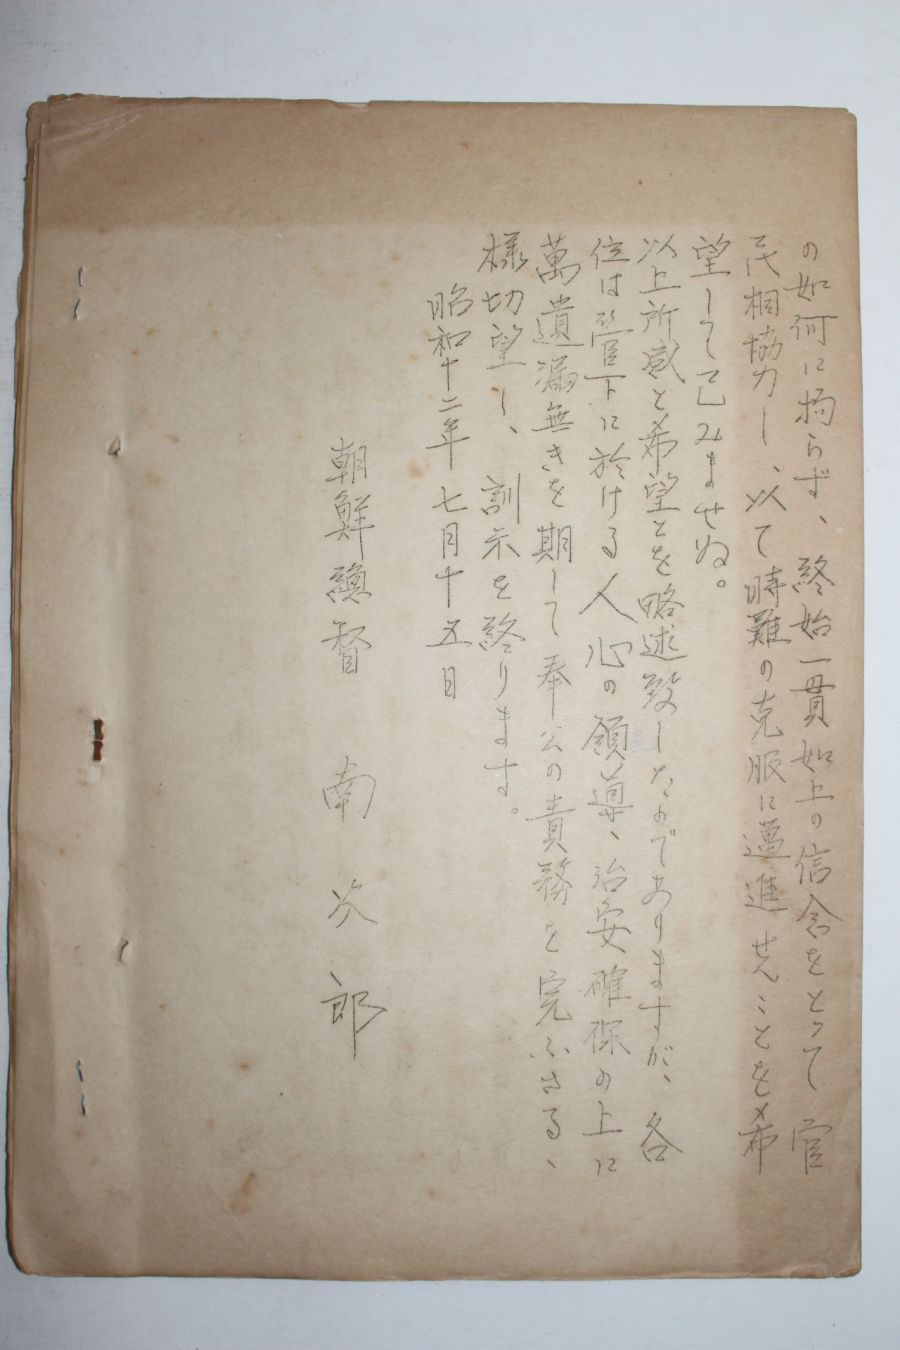 の如何に拘らず、終始一貫如上の信念をとつて官
民相協力し、以て時難の克服に邁進せんことを希
望して已みませぬ。
以上所感と希望とを略述致したのでありますが、各
位は管下に於ける人心の領導、治安確保の上に
萬遺漏無きを期して奉公の責務を完ふさるゝ
様切望し、訓示を終ります。
昭和十二年七月十五日
朝鮮總督 南次郎